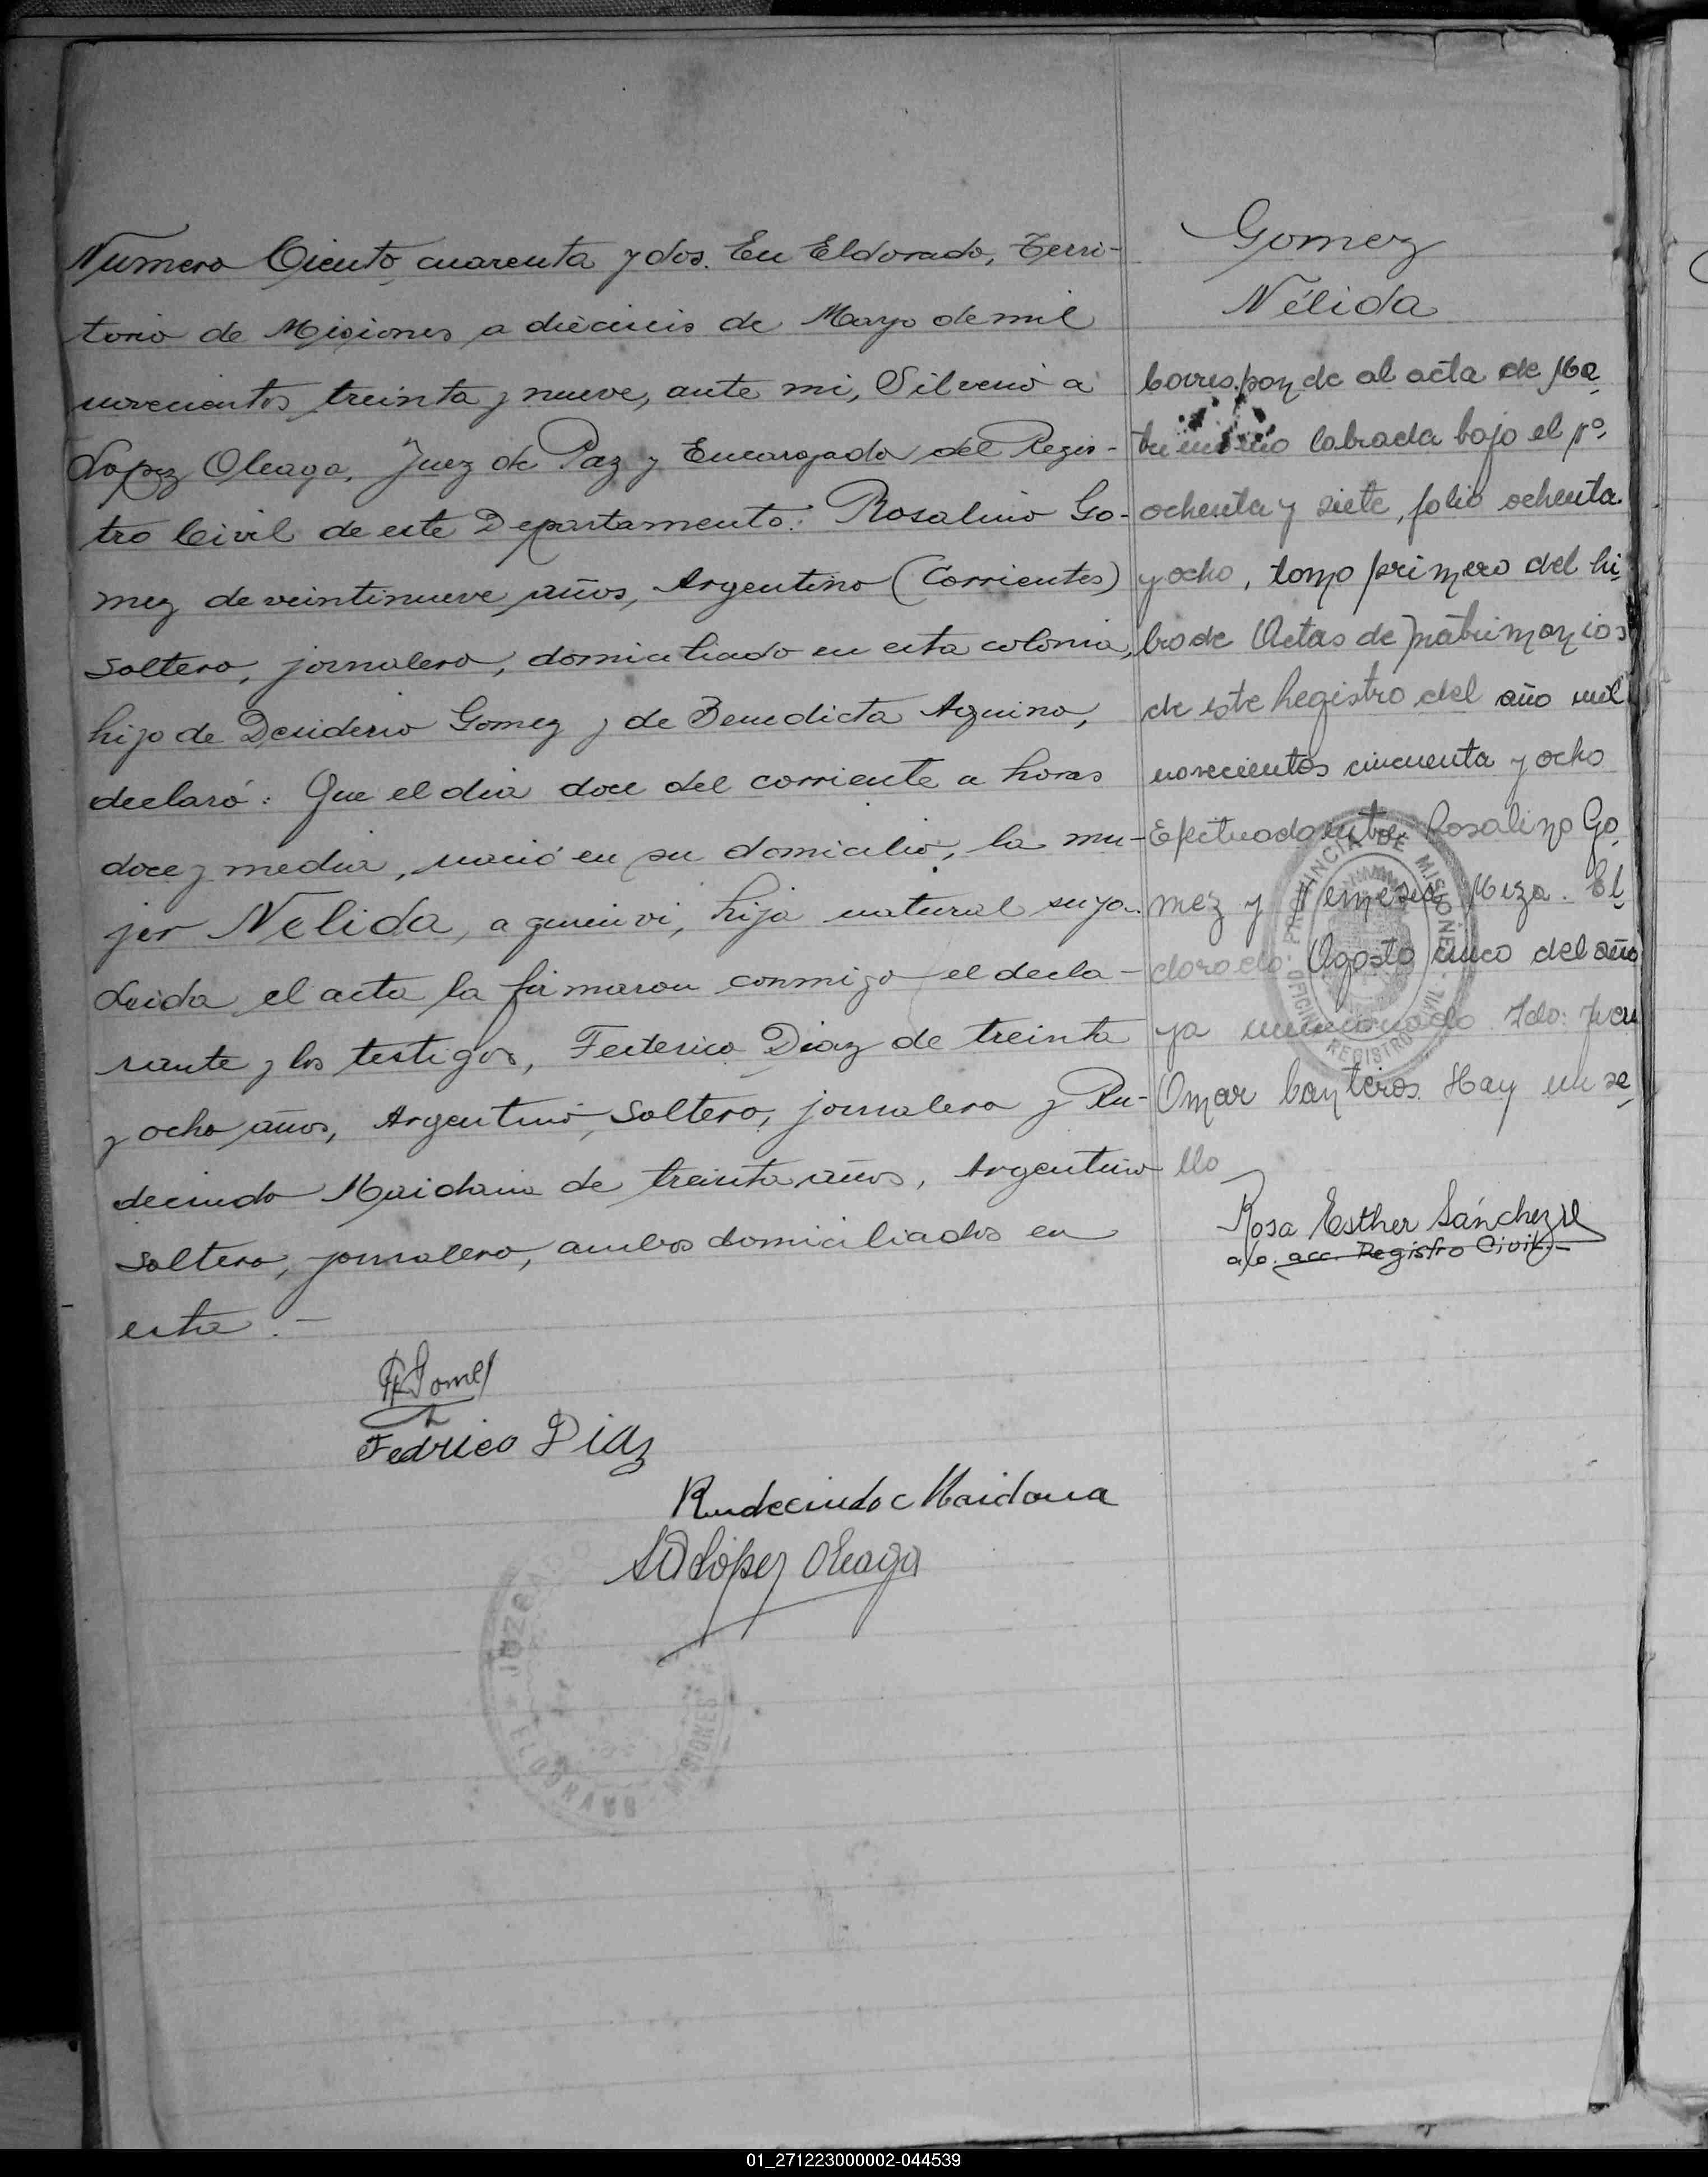 Numero Ciento cuarenta y dos. En Eldorado, Terri-
torio de Misiones a dieciseis de Mayo de mil
novecientos treinta y nueve, ante mi, Silverio A
Lopez Oleaga, Juez de Paz y Encargado del Regis-
tro Civil de este Departamento: Rosalino Go-
mez de veintinueve años, Argentino (Corrientes)
soltero, jornalero, domiciliado en esta colonia,
hijo de Desiderio Gomez y de Benedicta Aquino,
declaró: Que el dia doce del corriente a horas
doce y media, nació en su domicilio, la mu-
jer Nelida, a quien vi, hija natural suya.
Leida el acta la firmaron conmigo el decla-
rante y los testigos, Federico Diaz de treinta
y ocho años, Argentino, soltero, jornalero y Ru-
decindo Maidana de treinta años, Argentino
soltero, jornalero, ambos domiciliados en
esta.-
R Gomez
Fedrico Diaz
Rudecindo Maidana
SA López Oleaga
JUZGADO
ELDORADO MISIONES
Gomez
Nélida
Corresponde al acta de Ma
trimonio labrada bajo el nº
ochenta y siete, folio ochenta
y ocho, tomo primero del li
bro de Actas de matrimonios
de este Registro del año mil
novecientos cincuenta y ocho
Efectuado entre Rosalino Go
mez y Nemesia Meza. El
dorado Agosto cinco del año
ya mencionado Fdo: Juan
Omar Canteros. Hay un se
llo
PROVINCIA DE MISIONES
OFICINA REGISTRO CIVIL
Rosa Esther Sánchez
a/c. acc. Registro Civil.-
01_271223000002-044539